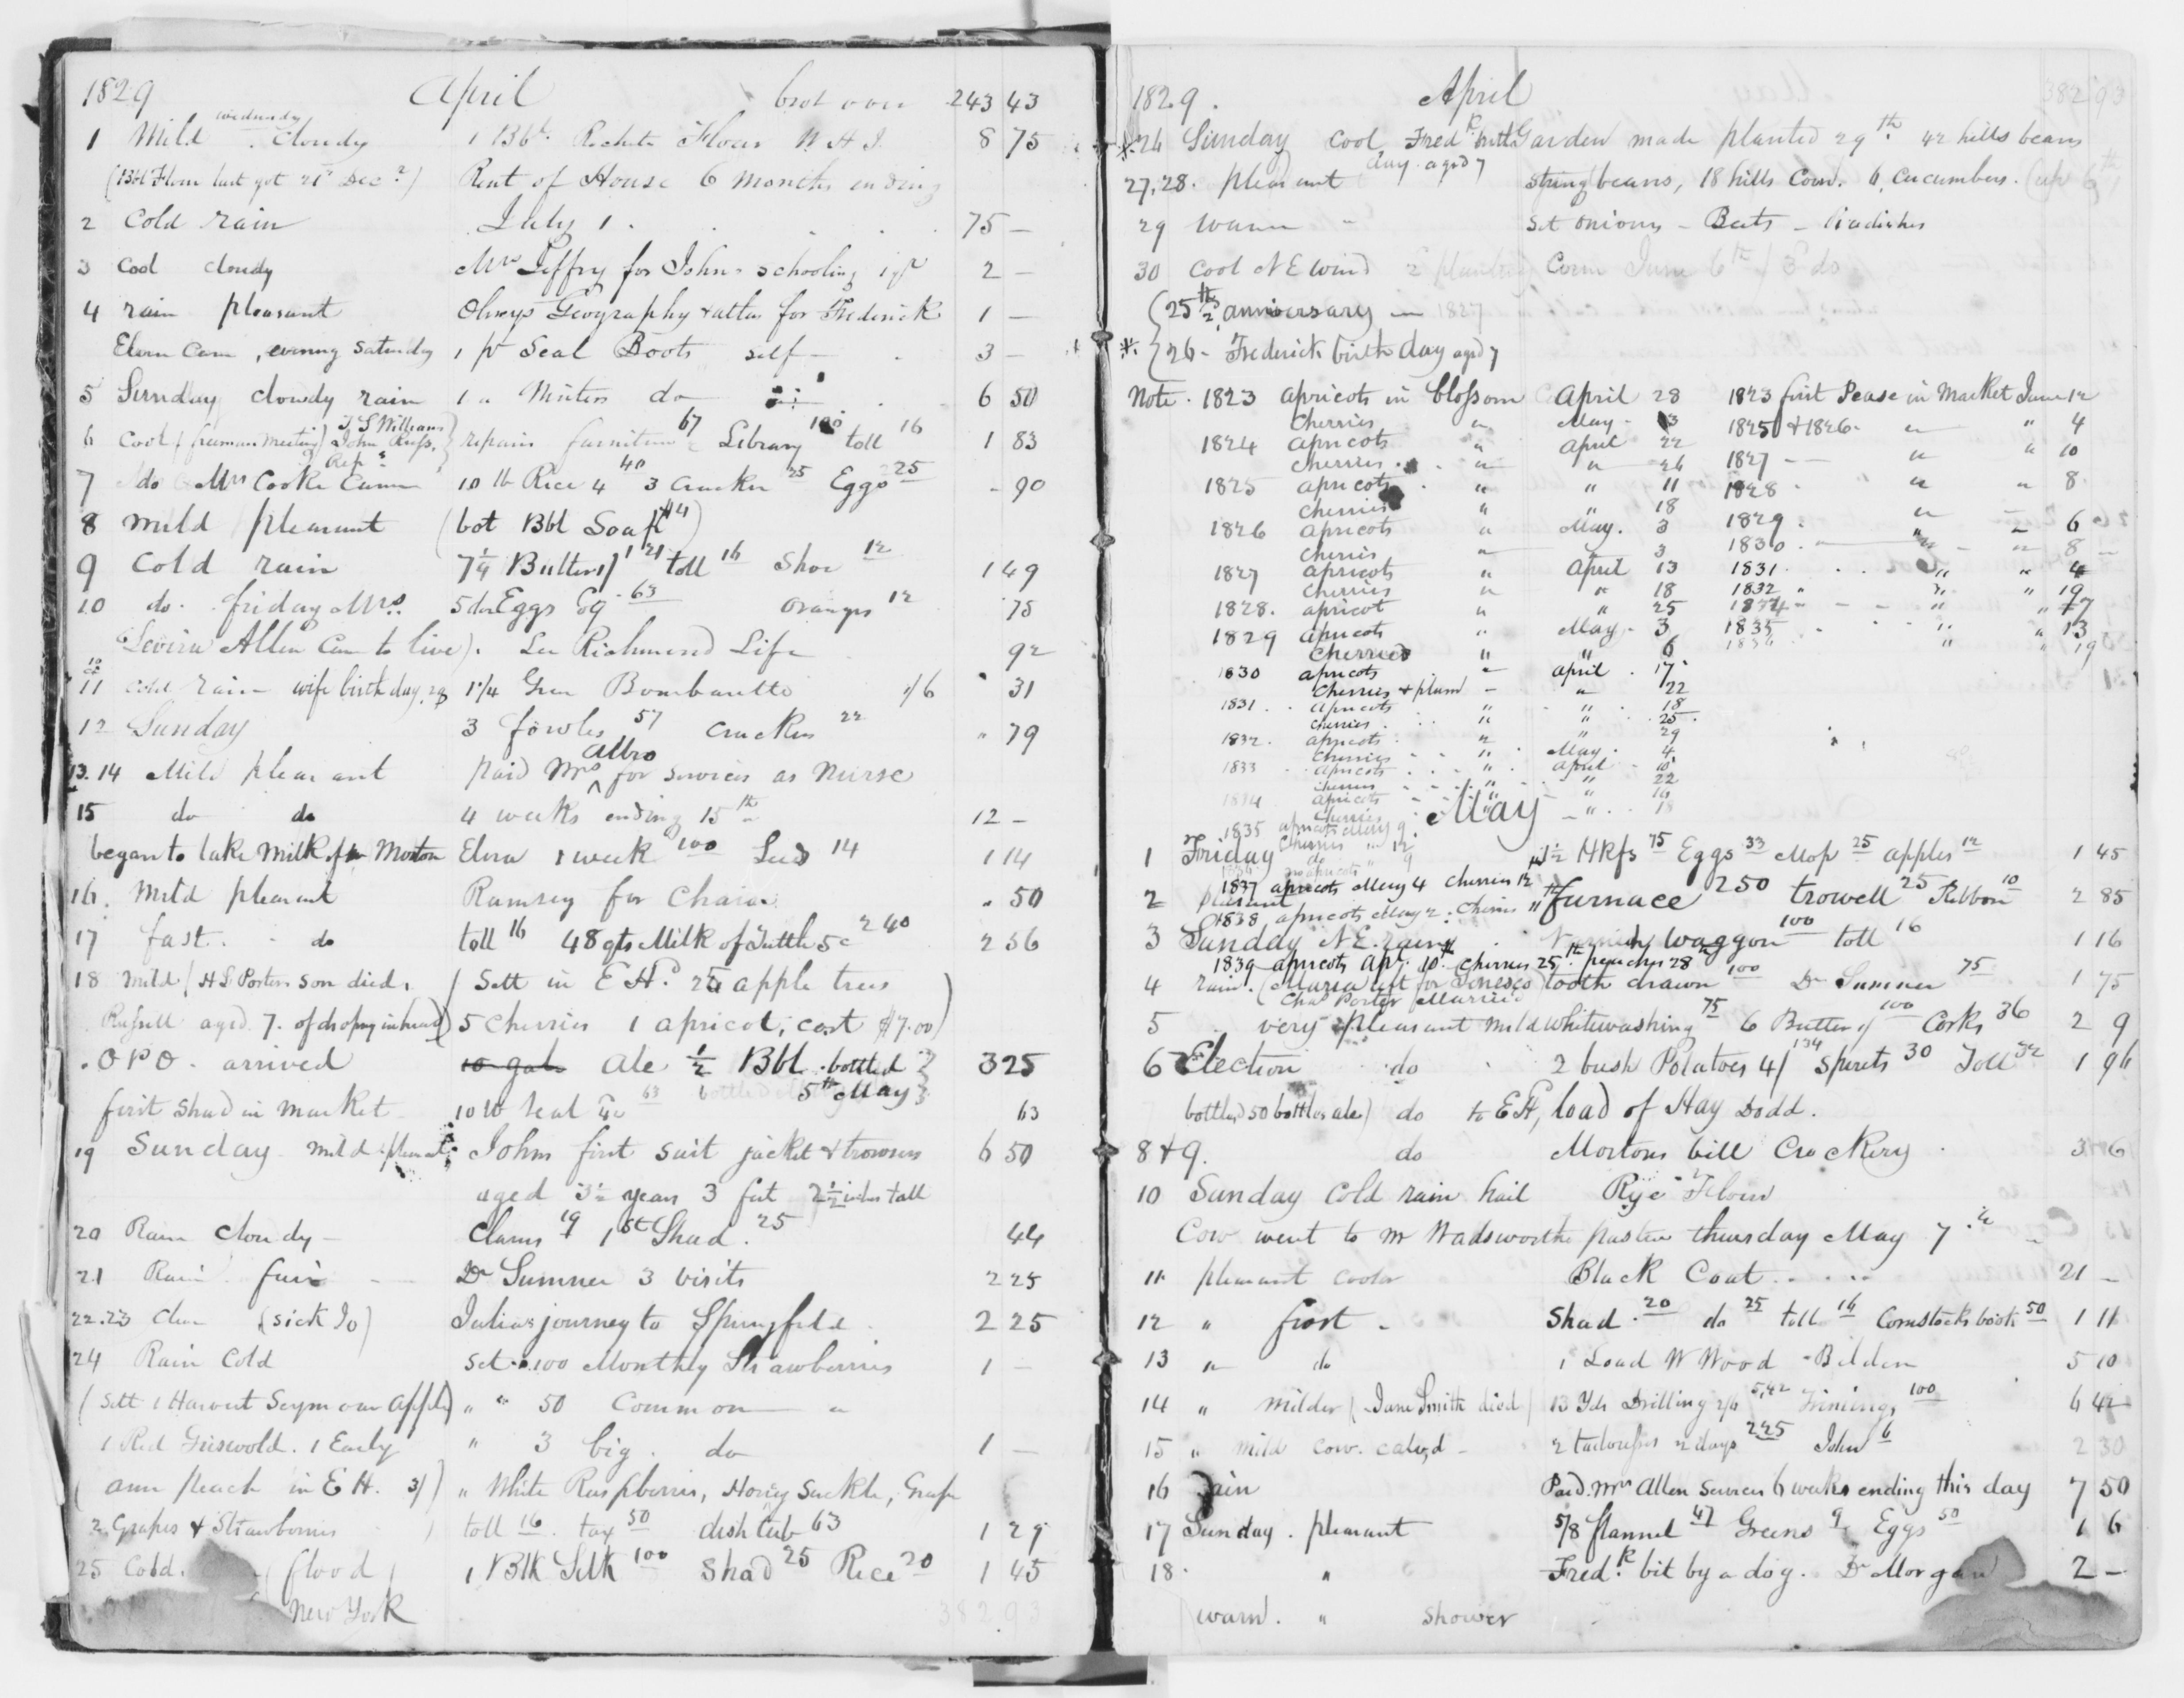 1829 April brot over 243 43
wednesday
1 Mild . cloudy 1 Bbl. Rochester Flour W H I. 8 75
(Bbl Flour last got 21st Dec.) Rent of House 6 months ending
2 Cold rain July 1 . . . . 75 —
3 Cool cloudy Mrs Jeffry for Johns schooling 2 —
4 rain pleasant Olneys Geography & atlas for Frederick 1 —
Elvira Came, evening Saturday 1 pr Seal Boots self — . 3 —
5 Sunday cloudy rain 1 " do 6 50
T S Williams
6 Cool (freemans meeting) John repairs furniture 67 Library 100 toll 16 1 83
Rep
7 do Mrs Cooke Came 10 lb Rice 4 40 3 Cracker 25 Eggs 25 - 90
8 mild pleasant (bot Bbl Soap $4)
9 Cold rain 7¼ Butter 1/ 1 21 toll 16 Shoe 12 149
10 do. friday Mrs. 5 doz Eggs 63 Oranges 12 75
Levira Allen Came to live). Leg Richmond Life 92
11 cold rain — wife birth day. 1¼ Green Bombazette 1/6 31
12 Sunday 3 fowls 57 Crackers 22 " 79
13.14 Mild pleasant paid Mrs Albro for services as nurse
15 do do 4 weeks ending 15th 12 —
began to take Milk of Morton Elvira 1 week 100 14 1 14
16. Mild pleasant Ramsey for Chaise . 50
17 fast. - do toll 16 48 qts Milk of Tuttle 5c 240 2 56
18 mild (H S Porters son died, (Sett in E H. 25 apple trees
Russell aged 7. of dropsy in head) 5 Cherries 1 apricot, cost $7.00)
. O P O. arrived 10 gal. Ale ½ Bbl. bottled 3 25
5th May
first Shad in Market 10 lb Veal 63 63
19 Sunday mild pleasant Johns first suit jacket & trowsers 6 50
aged 3½ years 3 feet 2½ inches tall
20 Rain cloudy — Clams 19 1st Shad. 25 44
21 Rain fair Dr Sumner 3 visits 2 25
22.23 Clear (sick Jo) Julias journey to Springfield 2 25
24 Rain Cold Set 100 Monthly Strawberries 1 —
(Sett 1 Harvest Seymour apple) " " 50 Common — "
1 Red Griswold. 1 Early " 3 big. do 1 —
(ann peach in E H. 3/) " White Raspberries, Honey Suckle, Grape
2 Grapes & Strawberries toll 16 . tax 50 dish tub 63 1 29
25 Cold. (flood 1 Blk Silk 100 Shad 25 Rice 20 1 45
New York 382.93
1829. April 382 93
*26 Sunday Cool Fredk birth Garden made planted 29th. 42 hills beans
day aged 7
27,28. pleasant string beans, 18 hills Corn. 6 Cucumbers. (up 6th
29 warm " set onions — Beets — Radishes
30 Cool N E wind 2 planting Corn June 6th / 3 do
(25th anniversary — 1827
*. 26 - Fredericks birth day aged 7
Note. 1823 apricots in blossom April 28 1823 first Pease in Market June 12
Cherries " May - 3 1825 & 1826 — " " 4
1824 apricots " April 22
cherries " " 26 1827 — " " 10
1825 apricots " " 11 1828 - " " 8
cherries " " 18
1826 apricots " May. 3 1829. " 6
cherries " 3 1830. — " 8
1827 apricots " April 13 1831. " " 4
cherries " " 18 1832 " " 19
1828. apricot " " 25 1834 - " " 17
1829 apricots " May - 3 1835 " " 13
Cherries " " 6 " " 19
1830 apricots. " april. 17
Cherries & plum — " 22
1831. . apricots " " . 18
cherries. " " . 25.
1832. apricots. " " 29
Cherries " May. 4
1833 . apricots. " . april - 10
cherries " " 22
1834 apricots " " 16
Cherries " " 18
1835 apricots May 9. May
1 Friday Cherries " 12 1½ Hkfs 75 Eggs 33 Mop 25 apples 12 1 45
1837 apricots May 4 Cherries 12
2 pleasant furnace 250 trowell 25 Ribbon 10 2 85
1838 apricots May 2. Cherries 11th
3 Sunday N.E. rain Varnish waggon 100 toll 16 1 16
1839 apricots Apl. 10th. Cherries 25th. peaches 28th
4 rain. (Maria left for Geneseo) tooth drawn 100 Dr Sumner 75 1 75
Chas Porter Married
5 very pleasant mild Whitewashing 75 6 Butter 1/ 100 Corks 36 2 9
6 Election do 2 bush Potatoes 4/ 134 Spirits 30 Toll 32 1 96
bottled 50 bottles ale) do to E H, load of Hay Dodd.
8 & 9. do Mortons bill Crockery . 3 6
10 Sunday Cold rain hail Rye Flour
Cow went to Mr Wadsworths pasture thursday May 7.th
11 pleasant cooler Black Coat . . . . 21 —
12 " frost — Shad. 20 do 25 toll 16 Comstocks book 50 1 11
13 " do 1 Load W Wood - Belden 5 10
14 " milder (Jane Smith died) 13 Yds Drilling 5,42 Trimings 100 6 42
15 " mild Cow. calved — 2 tailoresses 2 days 225 John 6 2 30
16 rain Paid. Mrs Allen Services 6 weeks ending this day 7 50
17 Sunday. pleasant 5/8 flannel 47 Greens 9 Eggs 50 1 6
18. " Fred.k bit by a dog. Dr Morgan 2 —
warm. " shower